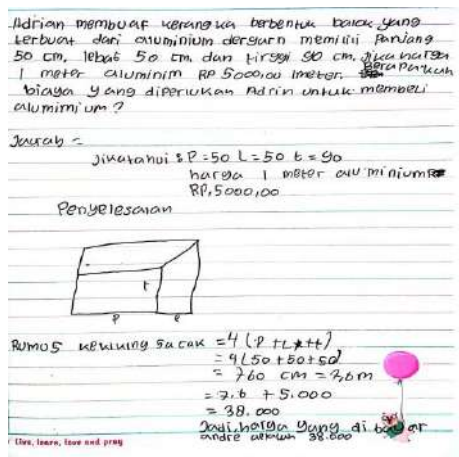 Adrian membuat kerangka berbentuk balok yang
terbuat dari aluminium dengarn memiliki Panjang
50 cm, lebat 50 cm, dan tinggi 90 cm. Jika harga
1 meter aluminim RP 5000,00 /meter. Berapakah
biaya yang diperlukan Adrin untuk membeli
alumimium?
Jawab =
Jikatahui : P = 50 L = 50 t = 90
harga 1 meter aluminium
RP, 5000,00
Penyelesaian
t
P
Rumus keliling = 4 (P + L + t)
= 4 (50 + 50 + 50)
= 760 cm = 7,6 m
= 7.6 + 5.000
= 38.000
Jadi, harga yang di bayar
andre adalah 38.000
Live, learn, love and pray